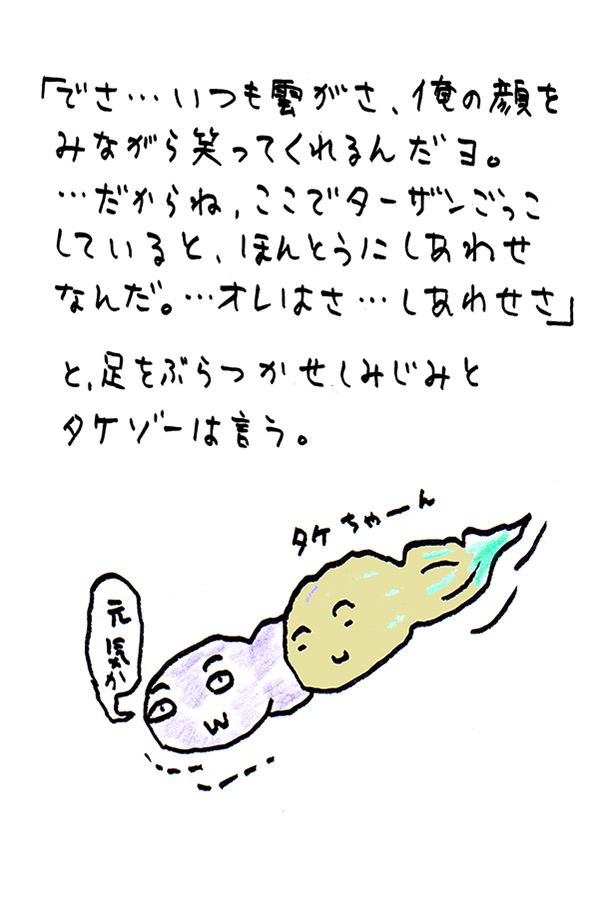 「でさ…いつも雲がさ、俺の顔を
みながら笑ってくれるんだヨ。
…だからね、ここでターザンごっこ
していると、ほんとうにしあわせ
なんだ。…オレはさ…しあわせさ」
と、足をぶらつかせしみじみと
タケゾーは言う。
タケちゃーん
元気か